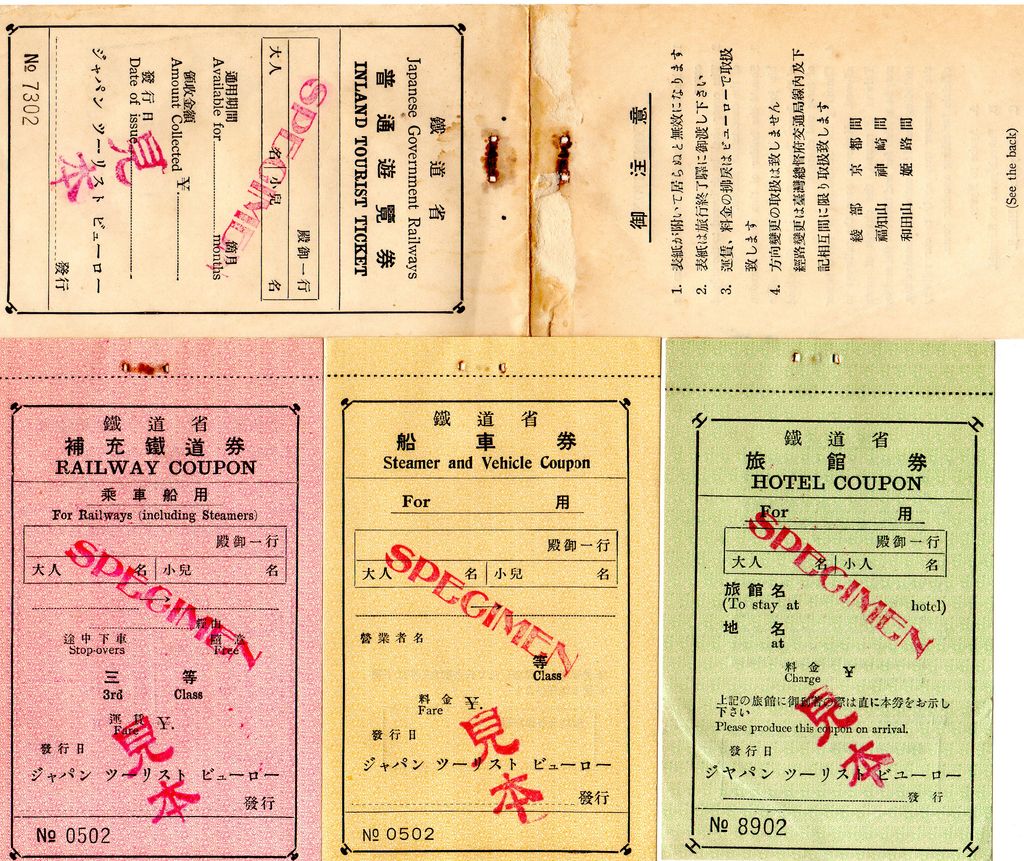 鐵道省
Japanese Government Railways
普通遊覽券
INLAND TOURIST TICKET
殿御一行
大人 名 小兒 名
SPECIMEN
通用期間 箇月
Available for months
領收金額
Amount Collected ¥
發行日
Date of issue
見本
ジャパン ツーリスト ビューロー
發行
№ 7302
御注意
1. 表紙が附いて居らぬと無效になります
2. 表紙は旅行終了驛に御渡し下さい
3. 運賃、料金の拂戾はビューローで取扱
致します
4. 方向變更の取扱は致しません
經路變更は臺灣總督府交通局線內及下
記相互間に限り取扱致します
綾部 京都間
福知山 神崎間
和田山 姬路間
(See the back)
鐵道省
補充鐵道券
RAILWAY COUPON
乘車船用
For Railways (including Steamers)
殿御一行
大人 名 小兒 名
SPECIMEN
經由
途中下車 隨意
Stop-overs Free
三 等
3rd Class
運賃 ¥.
Fare
發行日
見本
ジャパン ツーリスト ビューロー
發行
№ 0502
鐵道省
船車券
Steamer and Vehicle Coupon
For 用
殿御一行
大人 名 小兒 名
SPECIMEN
營業者名
等
Class
料金 ¥.
Fare
發行日
見本
ジャパン ツーリスト ビューロー
發行
№ 0502
鐵道省
旅館券
HOTEL COUPON
For 用
殿御一行
大人 名 小人 名
SPECIMEN
旅館名
(To stay at hotel)
地名
at
料金 ¥
Charge
上記の旅館に御到着の際は直に本券をお示し
下さい
Please produce this coupon on arrival.
發行日
見本
ジヤパン ツーリスト ビユーロー
發行
№ 8902